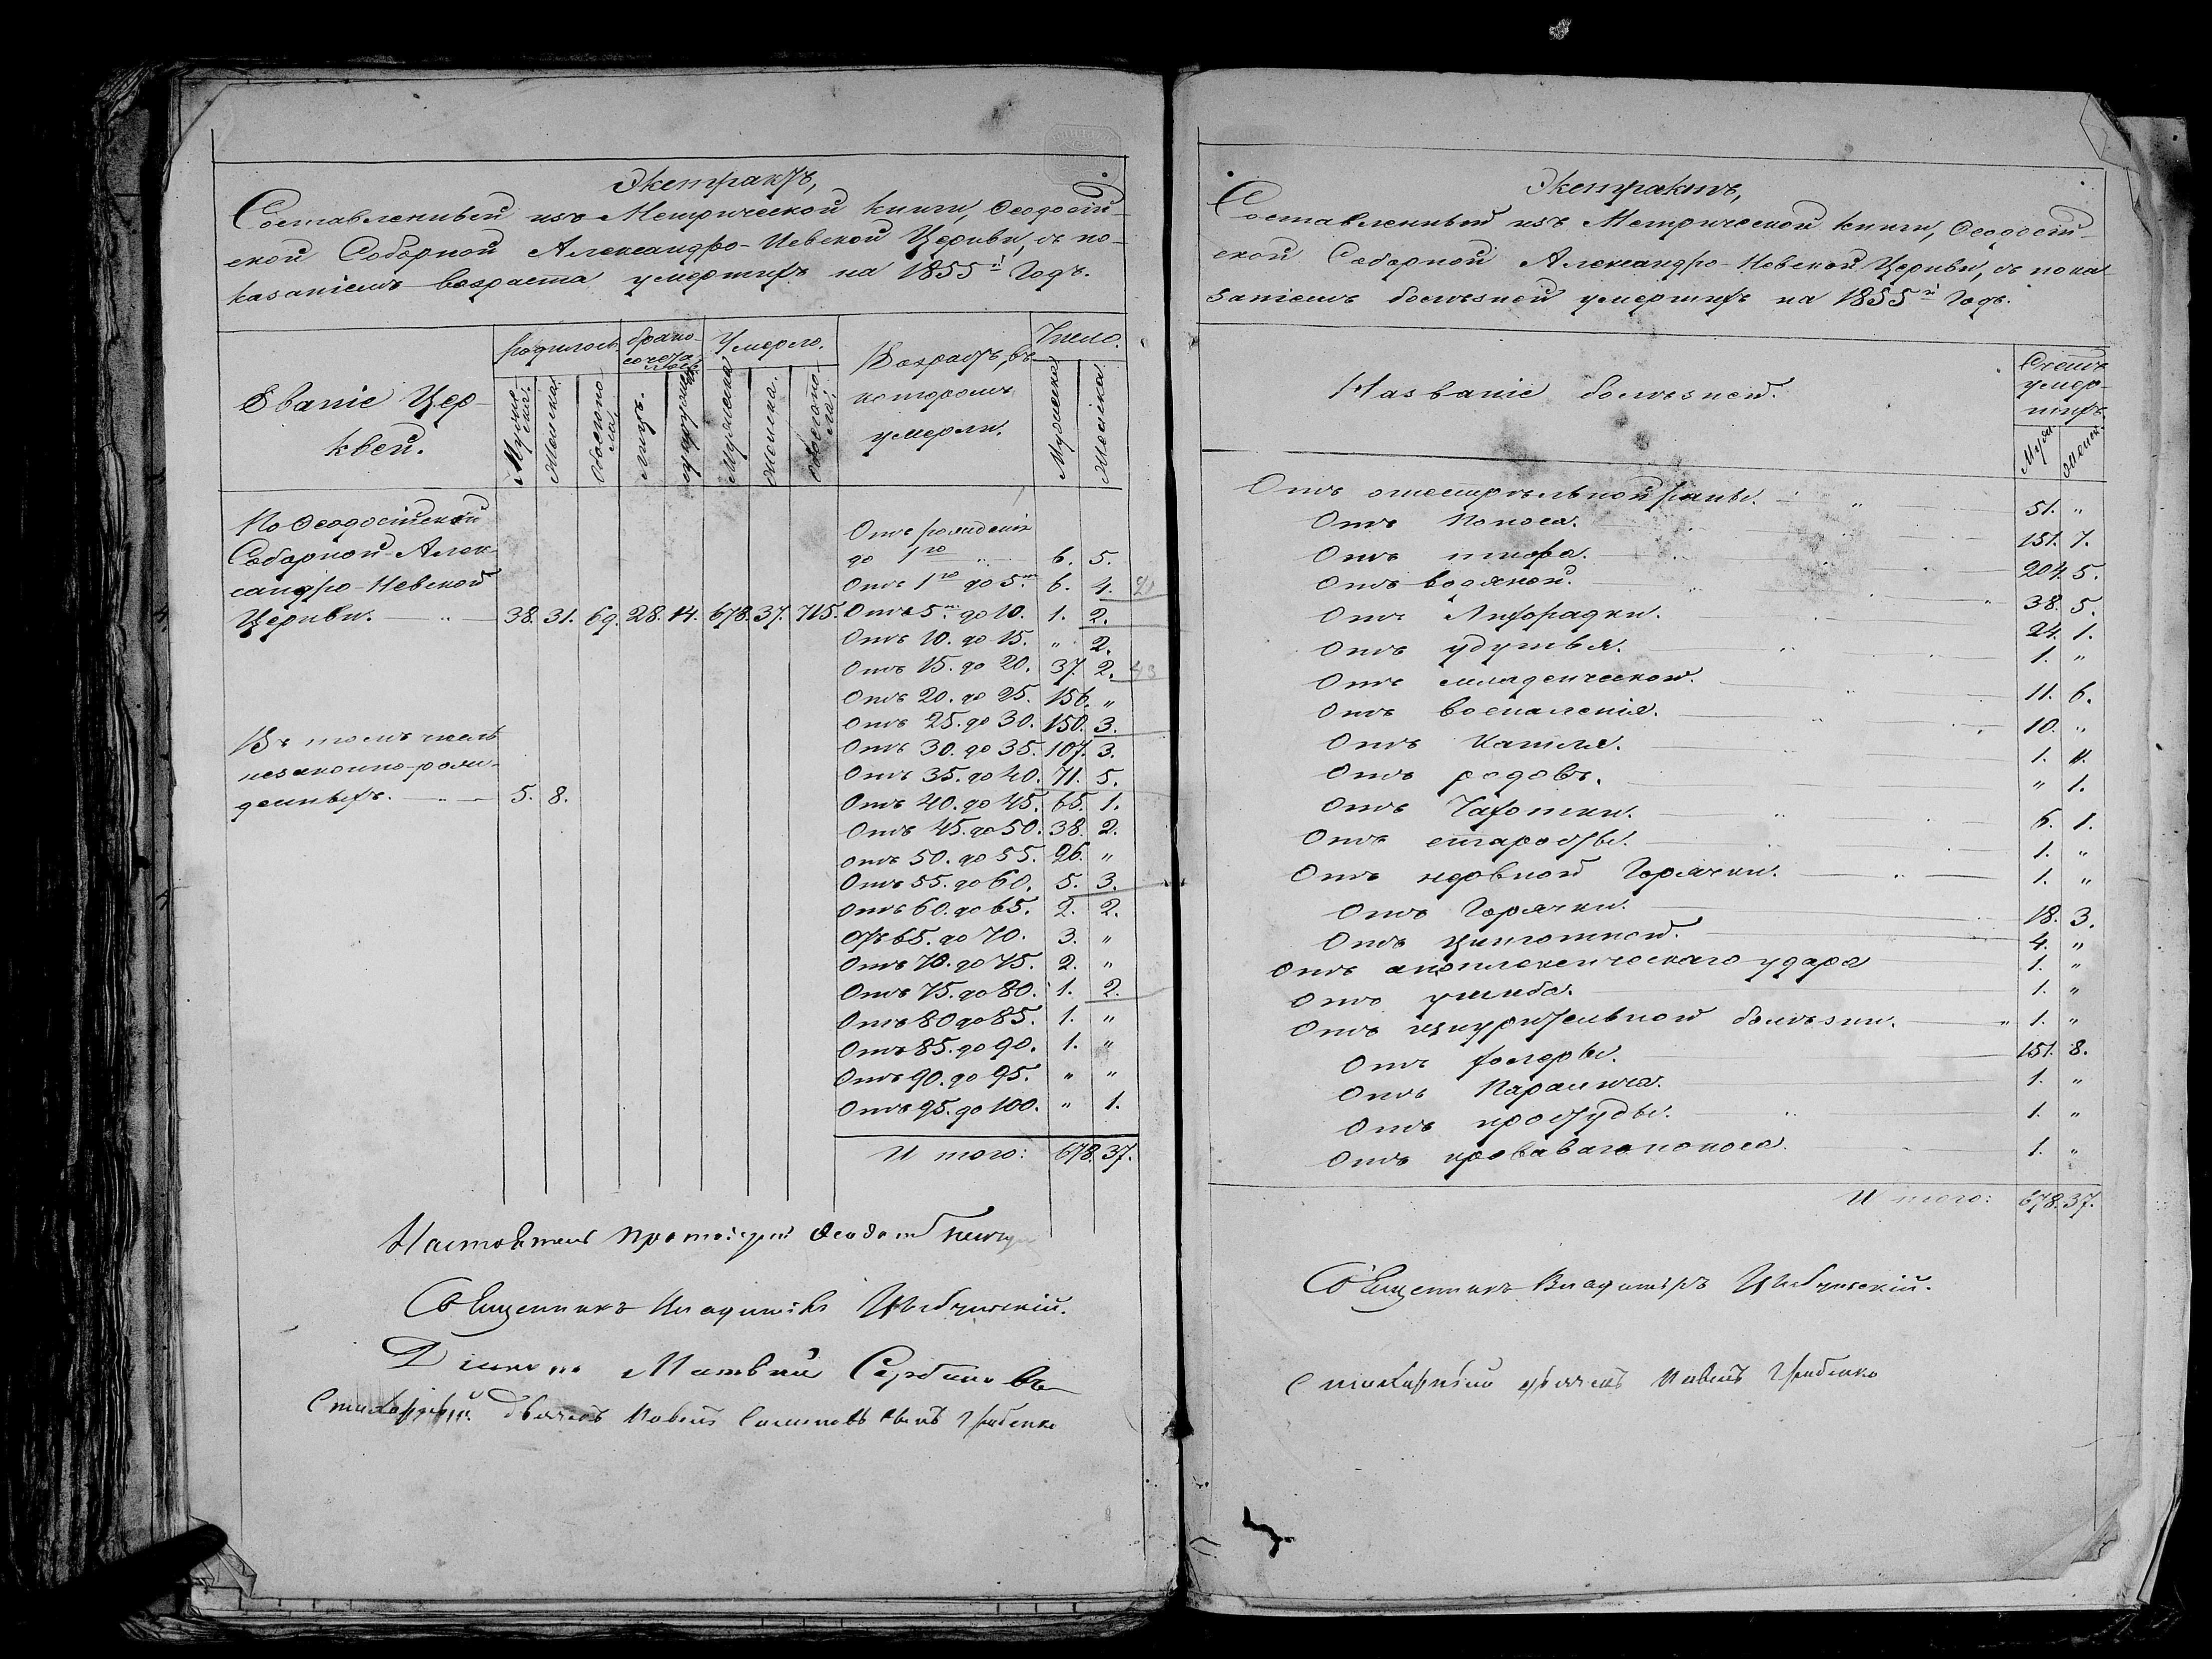 Экстрактъ,
Составленный изъ Метрической книги, Ѳеодосій-
ской Соборной Александро-Невской Церкви, съ по-
казаніемъ возраста умершихъ на 1855й Годъ.
Званіе Цер-
квей.
родилось.
Мужеска.
Женска.
Обоего пола.
брако-
сочеталось
лицъ.
супружествъ
Умерло.
Мужеска
Женска.
Обоего пола.
Возрастъ, въ
которомъ
умерли.
Число.
Мужеска
Женска
По Ѳеодосійской
Соборной Алек-
сандро-Невской
Церкви. — „ — 38. 31. 69. 28. 14. 678. 37. 715.
Въ томъ числѣ
незаконно-рож-
денныхъ. — „ — 5. 8.
Отъ рожденія
до 1го „ 6. 5.
Отъ 1го до 5ти 6. 4.
Отъ 5ти до 10. 1. 2.
Отъ 10. до 15. „ 2.
Отъ 15. до 20. 37. 2.
Отъ 20. до 25. 156. „
Отъ 25. до 30. 150. 3.
Отъ 30. до 35. 107. 3.
Отъ 35. до 40. 71. 5.
Отъ 40. до 45. 65. 1.
Отъ 45. до 50. 38. 2.
отъ 50. до 55. 26. „
Отъ 55. до 60. 5. 3.
Отъ 60. до 65. 2. 2.
Отъ 65. до 70. 3. „
Отъ 70. до 75. 2. „
Отъ 75. до 80. 1. 2.
Отъ 80 до 85. 1. „
Отъ 85. до 90. 1. „
Отъ 90. до 95. „ „
Отъ 95. до 100. „ 1.
И того: 678. 37.
Настоятель Протоіерей
Священникъ Владиміръ
Діаконъ Матвей Сербиновъ
Стихарный дьячекъ Павелъ Грибенко
Экстрактъ,
Составленный изъ Метрической книги, Ѳеодосій-
ской Соборной Александро-Невской Церкви, съ пока
заніемъ болѣзней умершихъ на 1855й Годъ.
Названіе болѣзней.
Счетъ
умер-
шихъ.
Муж.
Женск.
Отъ огнестрѣльной раны. 51. „
Отъ Поноса. 151. 7.
Отъ тифа. 204. 5.
Отъ водяной. 38. 5.
Отъ Лихорадки. 24. 1.
Отъ удушья. 1. „
Отъ младенческой. 11. 6.
Отъ воспаленія. 10. „
Отъ Кашля. 1. „
Отъ родовъ. „ 1.
Отъ Чахотки. 6. 1.
Отъ старости. 1. „
Отъ нервной Горячки. 1. „
Отъ Горячки. 18. 3.
Отъ цынготной. 4. „
Отъ апоплексическаго удара 1. „
Отъ ушиба. 1. „
Отъ изнурительной болѣзни. 1. „
Отъ холеры. 151. 8.
Отъ Паралича. 1. „
Отъ простуды. 1. „
Отъ кроваваго поноса. 1. „
И того: 678. 37.
Священникъ Владиміръ
Стихарный дьячекъ Павелъ Грибенко